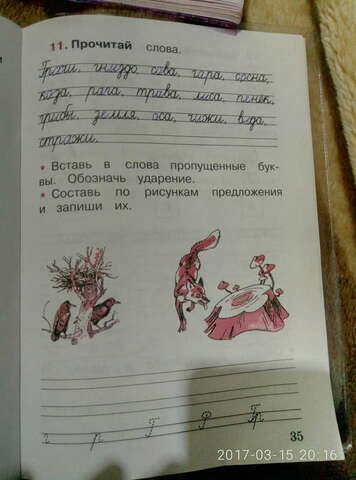 11. Прочитай слова.
Грачи, гнездо, сова, гора, сосна,
коза, роса, трава, лиса, пенёк,
грибы, земля, оса, чижи, вода,
стрижи.
• Вставь в слова пропущенные бук-
вы. Обозначь ударение.
• Составь по рисункам предложения
и запиши их.
г р Г Р Гр
35
2017-03-15 20:16